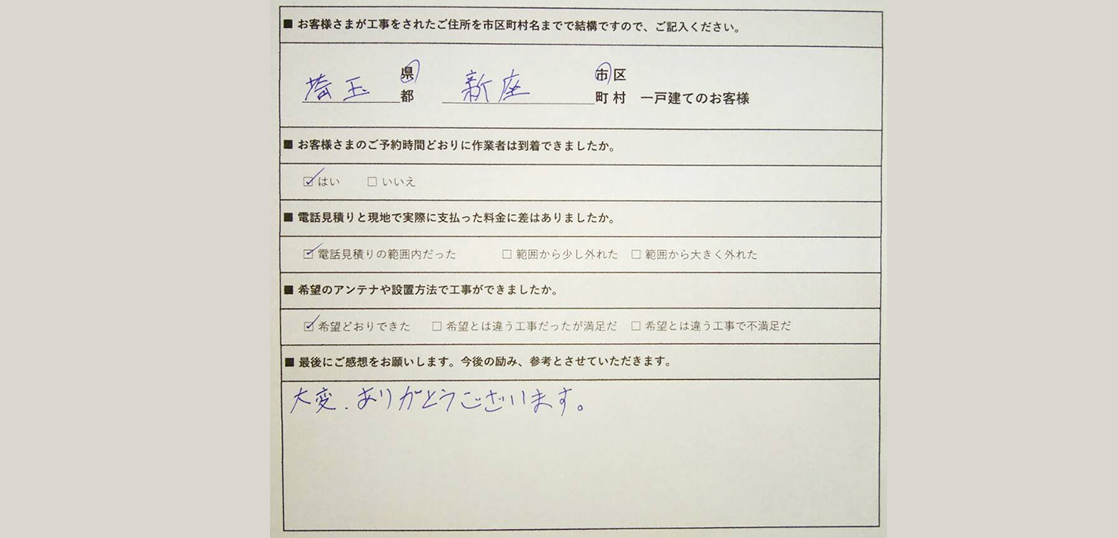 ■ お客様さまが工事をされたご住所を市区町村名までで結構ですので、ご記入ください。
埼玉 県 都 新座 市 区 町 村 一戸建てのお客様
■ お客様さまのご予約時間どおりに作業者は到着できましたか。
☑ はい □ いいえ
■ 電話見積りと現地で実際に支払った料金に差はありましたか。
☑ 電話見積りの範囲内だった □ 範囲から少し外れた □ 範囲から大きく外れた
■ 希望のアンテナや設置方法で工事ができましたか。
☑ 希望どおりできた □ 希望とは違う工事だったが満足だ □ 希望とは違う工事で不満足だ
■ 最後にご感想をお願いします。今後の励み、参考とさせていただきます。
大変、ありがとうございます。